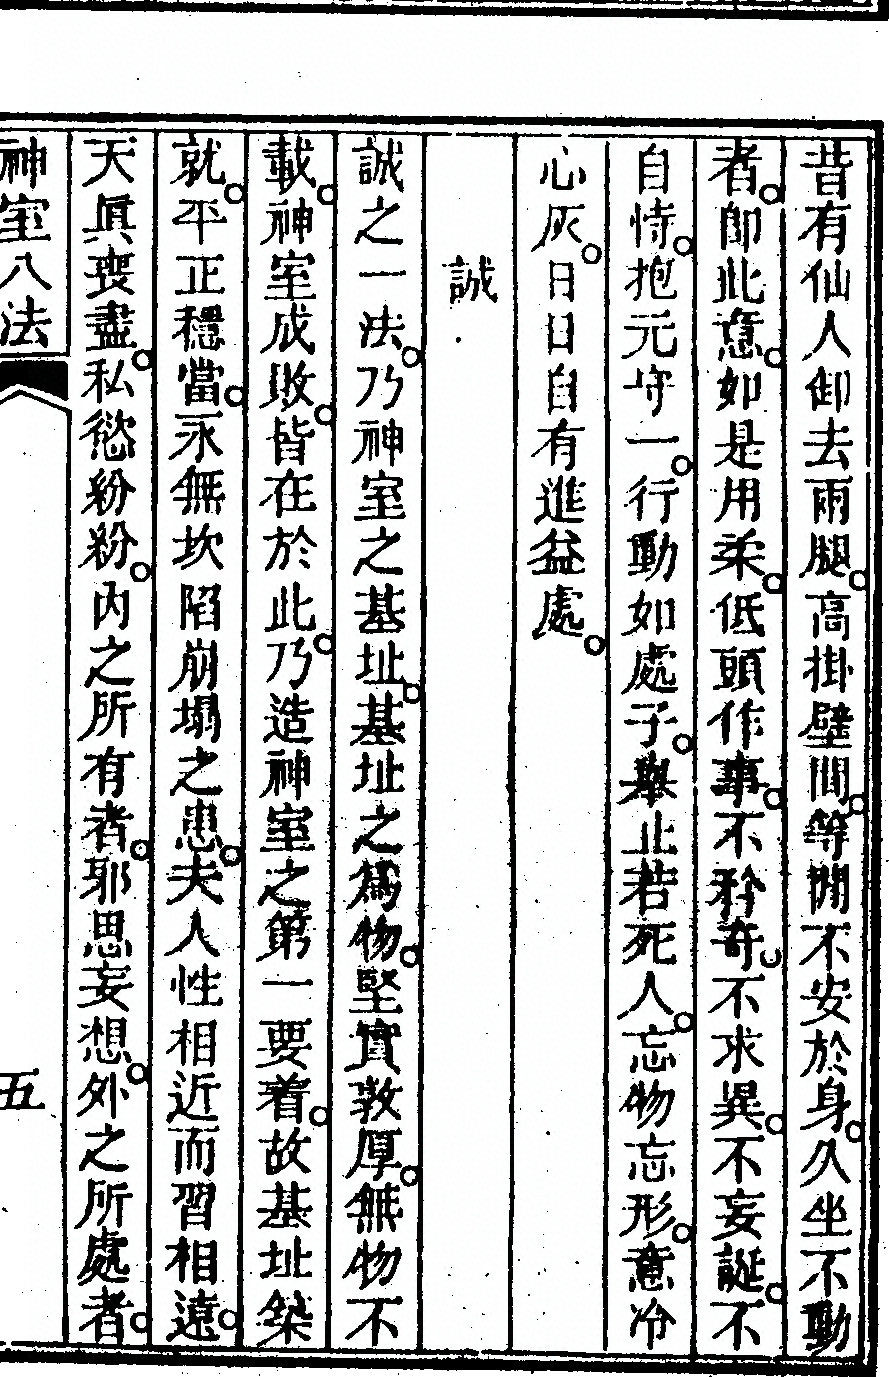 昔有仙人卸去兩腿。高掛壁間。等閒不安於身。久坐不動
者。卽此意。如是用柔。低頭作事。不矜奇。不求異。不妄誕。不
自恃。抱元守一。行動如處子。擧止若死人。忘物忘形。意冷
心灰。日日自有進益處。
誠
誠之一法。乃神室之基址。基址之爲物。堅實敦厚。無物不
載。神室成敗。皆在於此。乃造神室之第一要着。故基址築
就。平正穩當。永無坎陷崩塌之患。夫人性相近而習相遠。
天眞喪盡。私慾紛紛。內之所有者。邪思妄想。外之所處者。
神室八法
五